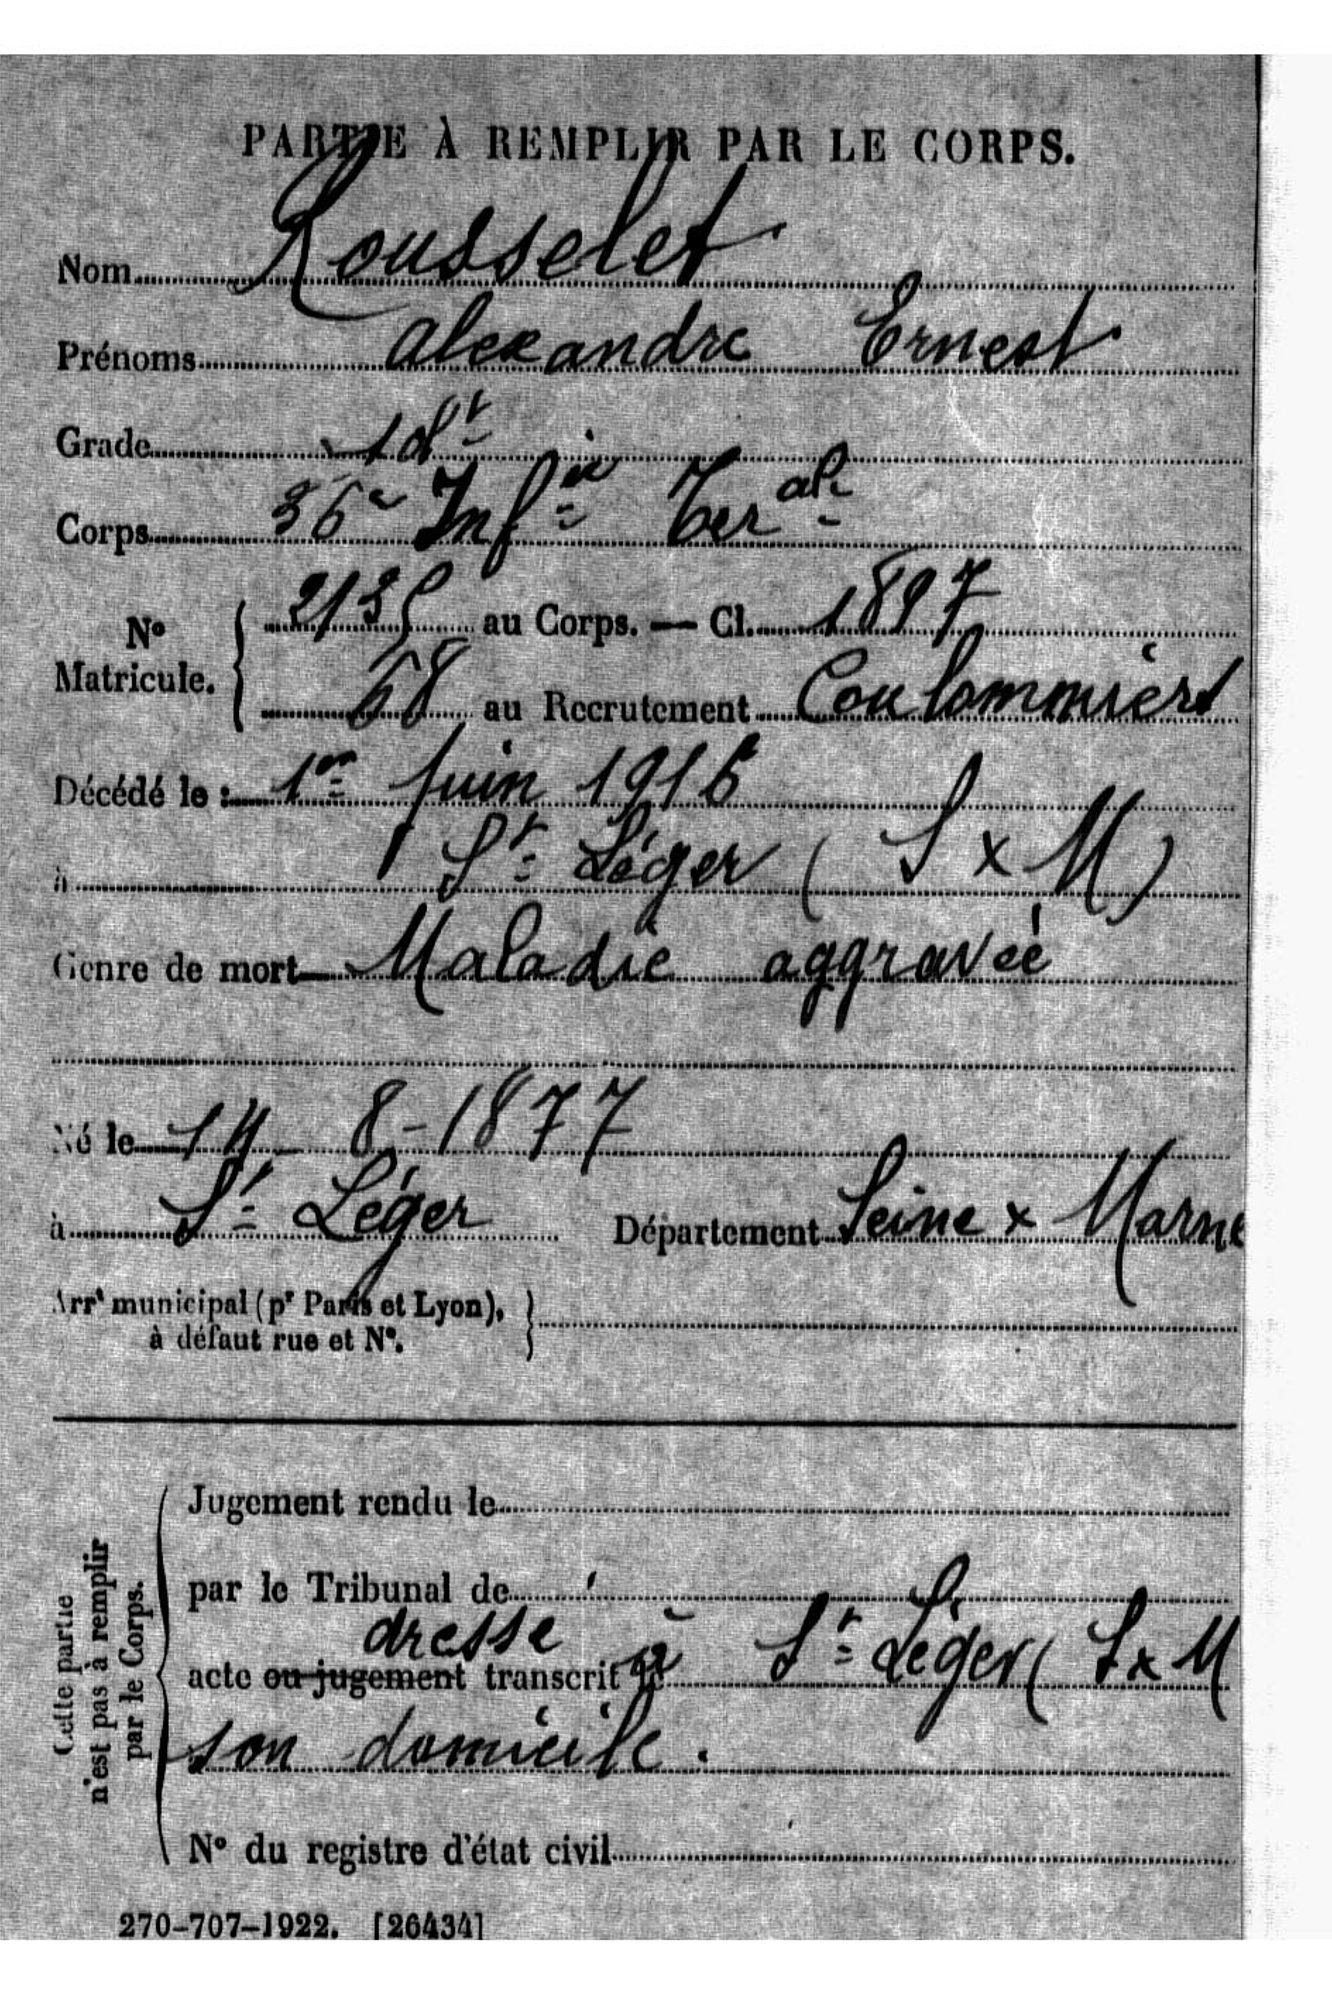 PARTIE À REMPLIR PAR LE CORPS.
Nom Rousselet
Prénoms Alexandre Ernest
Grade Sdt
Corps 36e Infie Terale
No Matricule. 2135 au Corps. — Cl. 1897
68 au Recrutement Coulommiers
Décédé le : 1er Juin 1916
à St Léger ( S x M )
Genre de mort Maladie aggravée
Né le 14 - 8 - 1877
à St Léger Département Seine x Marne
Arrt municipal (pr Paris et Lyon),
à défaut rue et No.
Cette partie
n'est pas à remplir
par le Corps.
Jugement rendu le
par le Tribunal de
dresse
acte ou jugement transcrit à St Léger ( S x M
son domicile .
No du registre d'état civil
270-707-1922. [26434]